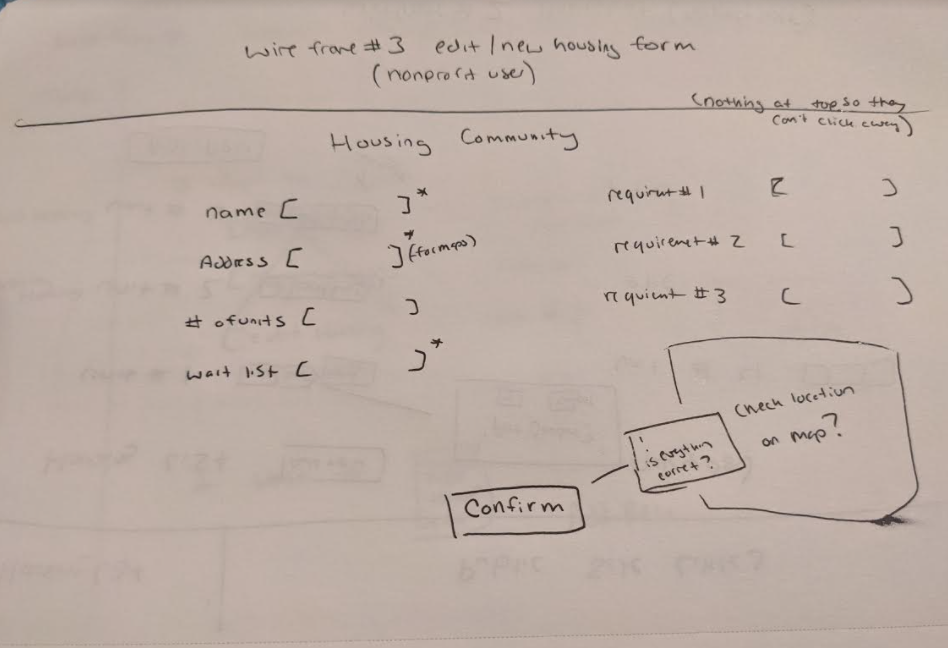 wire frame #3 edit / new housing form
(nonprofit user)
(nothing at top so they
can't click away)
Housing Community
name [ ]*
Address [ ]* (for maps)
# of units [ ]
wait list [ ]*
requirnt #1 [ ]
requiremet # 2 [ ]
requiemt #3 [ ]
Check location
on map?
is everythin
corret?
Confirm